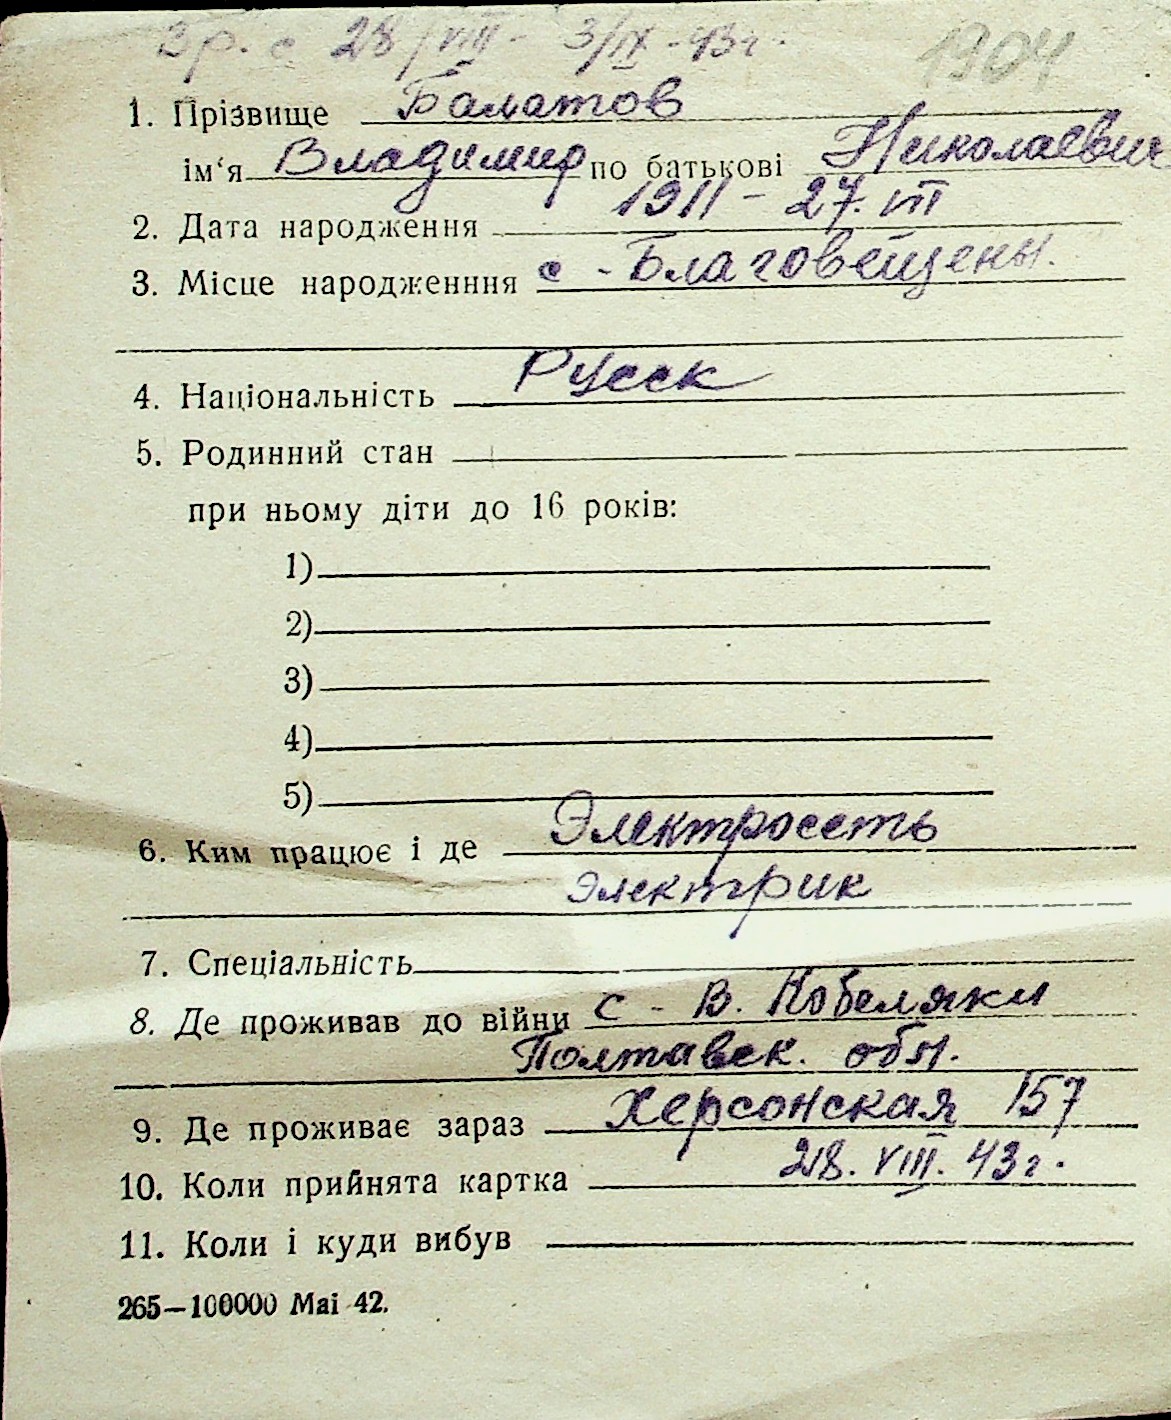 Зр. с 28/VIII - 3/IX - 43 г.
1904
1. Прізвище Балатов
ім‘я Владимир по батькові Николаевич
2. Дата народження 1911 - 27. VII
3. Місце народженння с - Благовещены.
4. Національність Русск
5. Родинний стан
при ньому діти до 16 років:
1)
2)
3)
4)
5)
6. Ким працює і де Электросеть
электрик
7. Спеціальність
8. Де проживав до війни с - В. Кобеляки
Полтавск. обл.
9. Де проживає зараз Херсонская 157
10. Коли прийнята картка 28. VIII. 43 г.
11. Коли і куди вибув
265—100000 Mai 42.